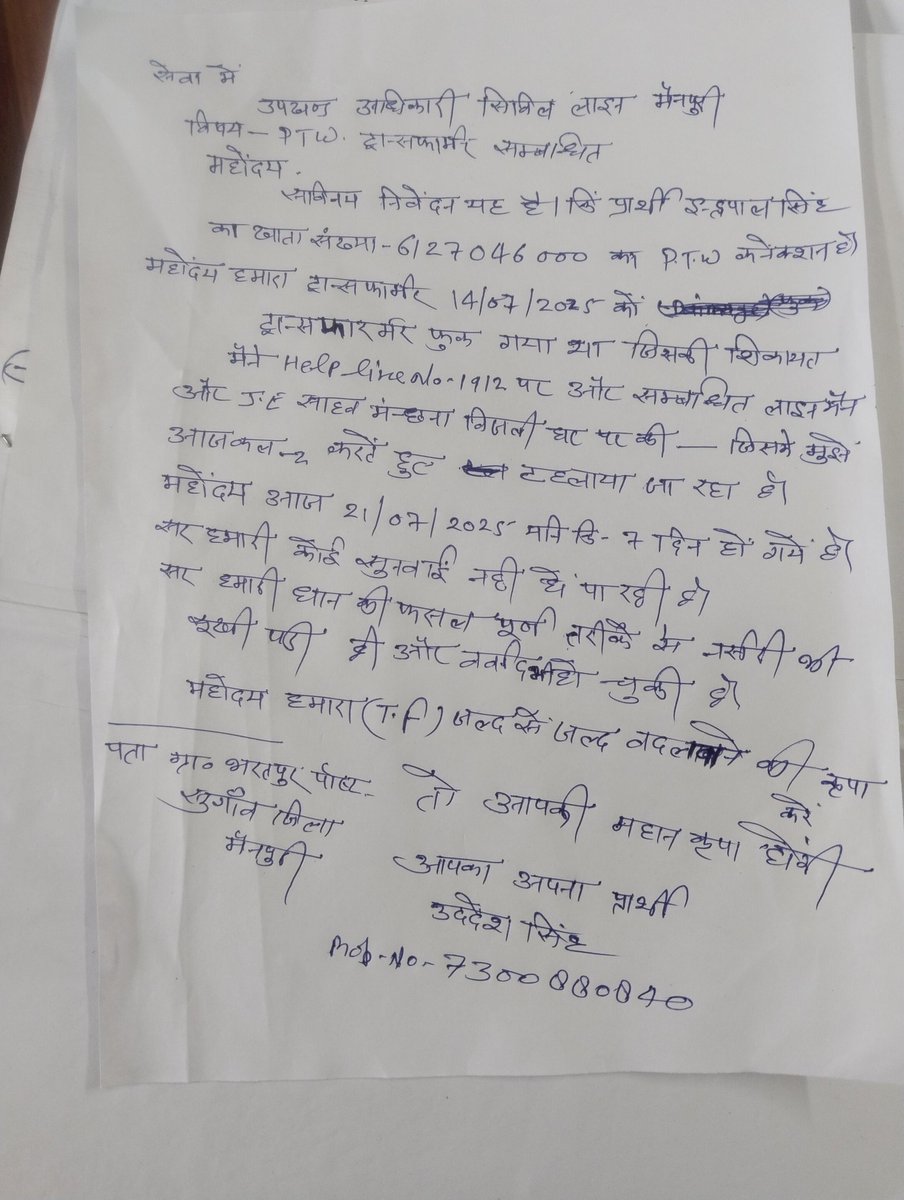 सेवा में
उपखण्ड अधिकारी सिविल लाइन मैनपुरी
विषय - P.T.W. ट्रान्सफार्मर सम्बन्धित
महोदय.
सविनय निवेदन यह है। कि प्रार्थी इन्द्रपाल सिंह
का खाता संख्या - 6127046000 का P.T.W कनेक्शन है।
महोदय हमारा ट्रान्सफार्मर 14/07/2025 को
ट्रान्सफारर्मर फुक गया था जिसकी शिकायत
मैने Help line No-1912 पर और सम्बन्धित लाइन मैन
और J.E साहब मन्छना बिजली घर पर की — जिसमे मुझे
आजकल-2 करते हुए टहलाया जा रहा है।
महोदय आज 21/07/2025 यानि कि- 7 दिन हो गये है।
सर हमारी कोई सुनवाई नही हो पा रही है।
सर हमारी धान की फसल पूर्ण तरीके से नर्सरी की
सूखी पडी है और बर्वाद हो चुकी है।
महोदय हमारा (T.F) जल्द से जल्द बदलवाने की कृपा करें
तो आपकी महान कृपा होगी
पता ग्रा० भरतपुर पोस्ट-
सुगाँव जिला
मैनपुरी
आपका अपना प्रार्थी
उददेश सिंह
Mob-No-7300880840